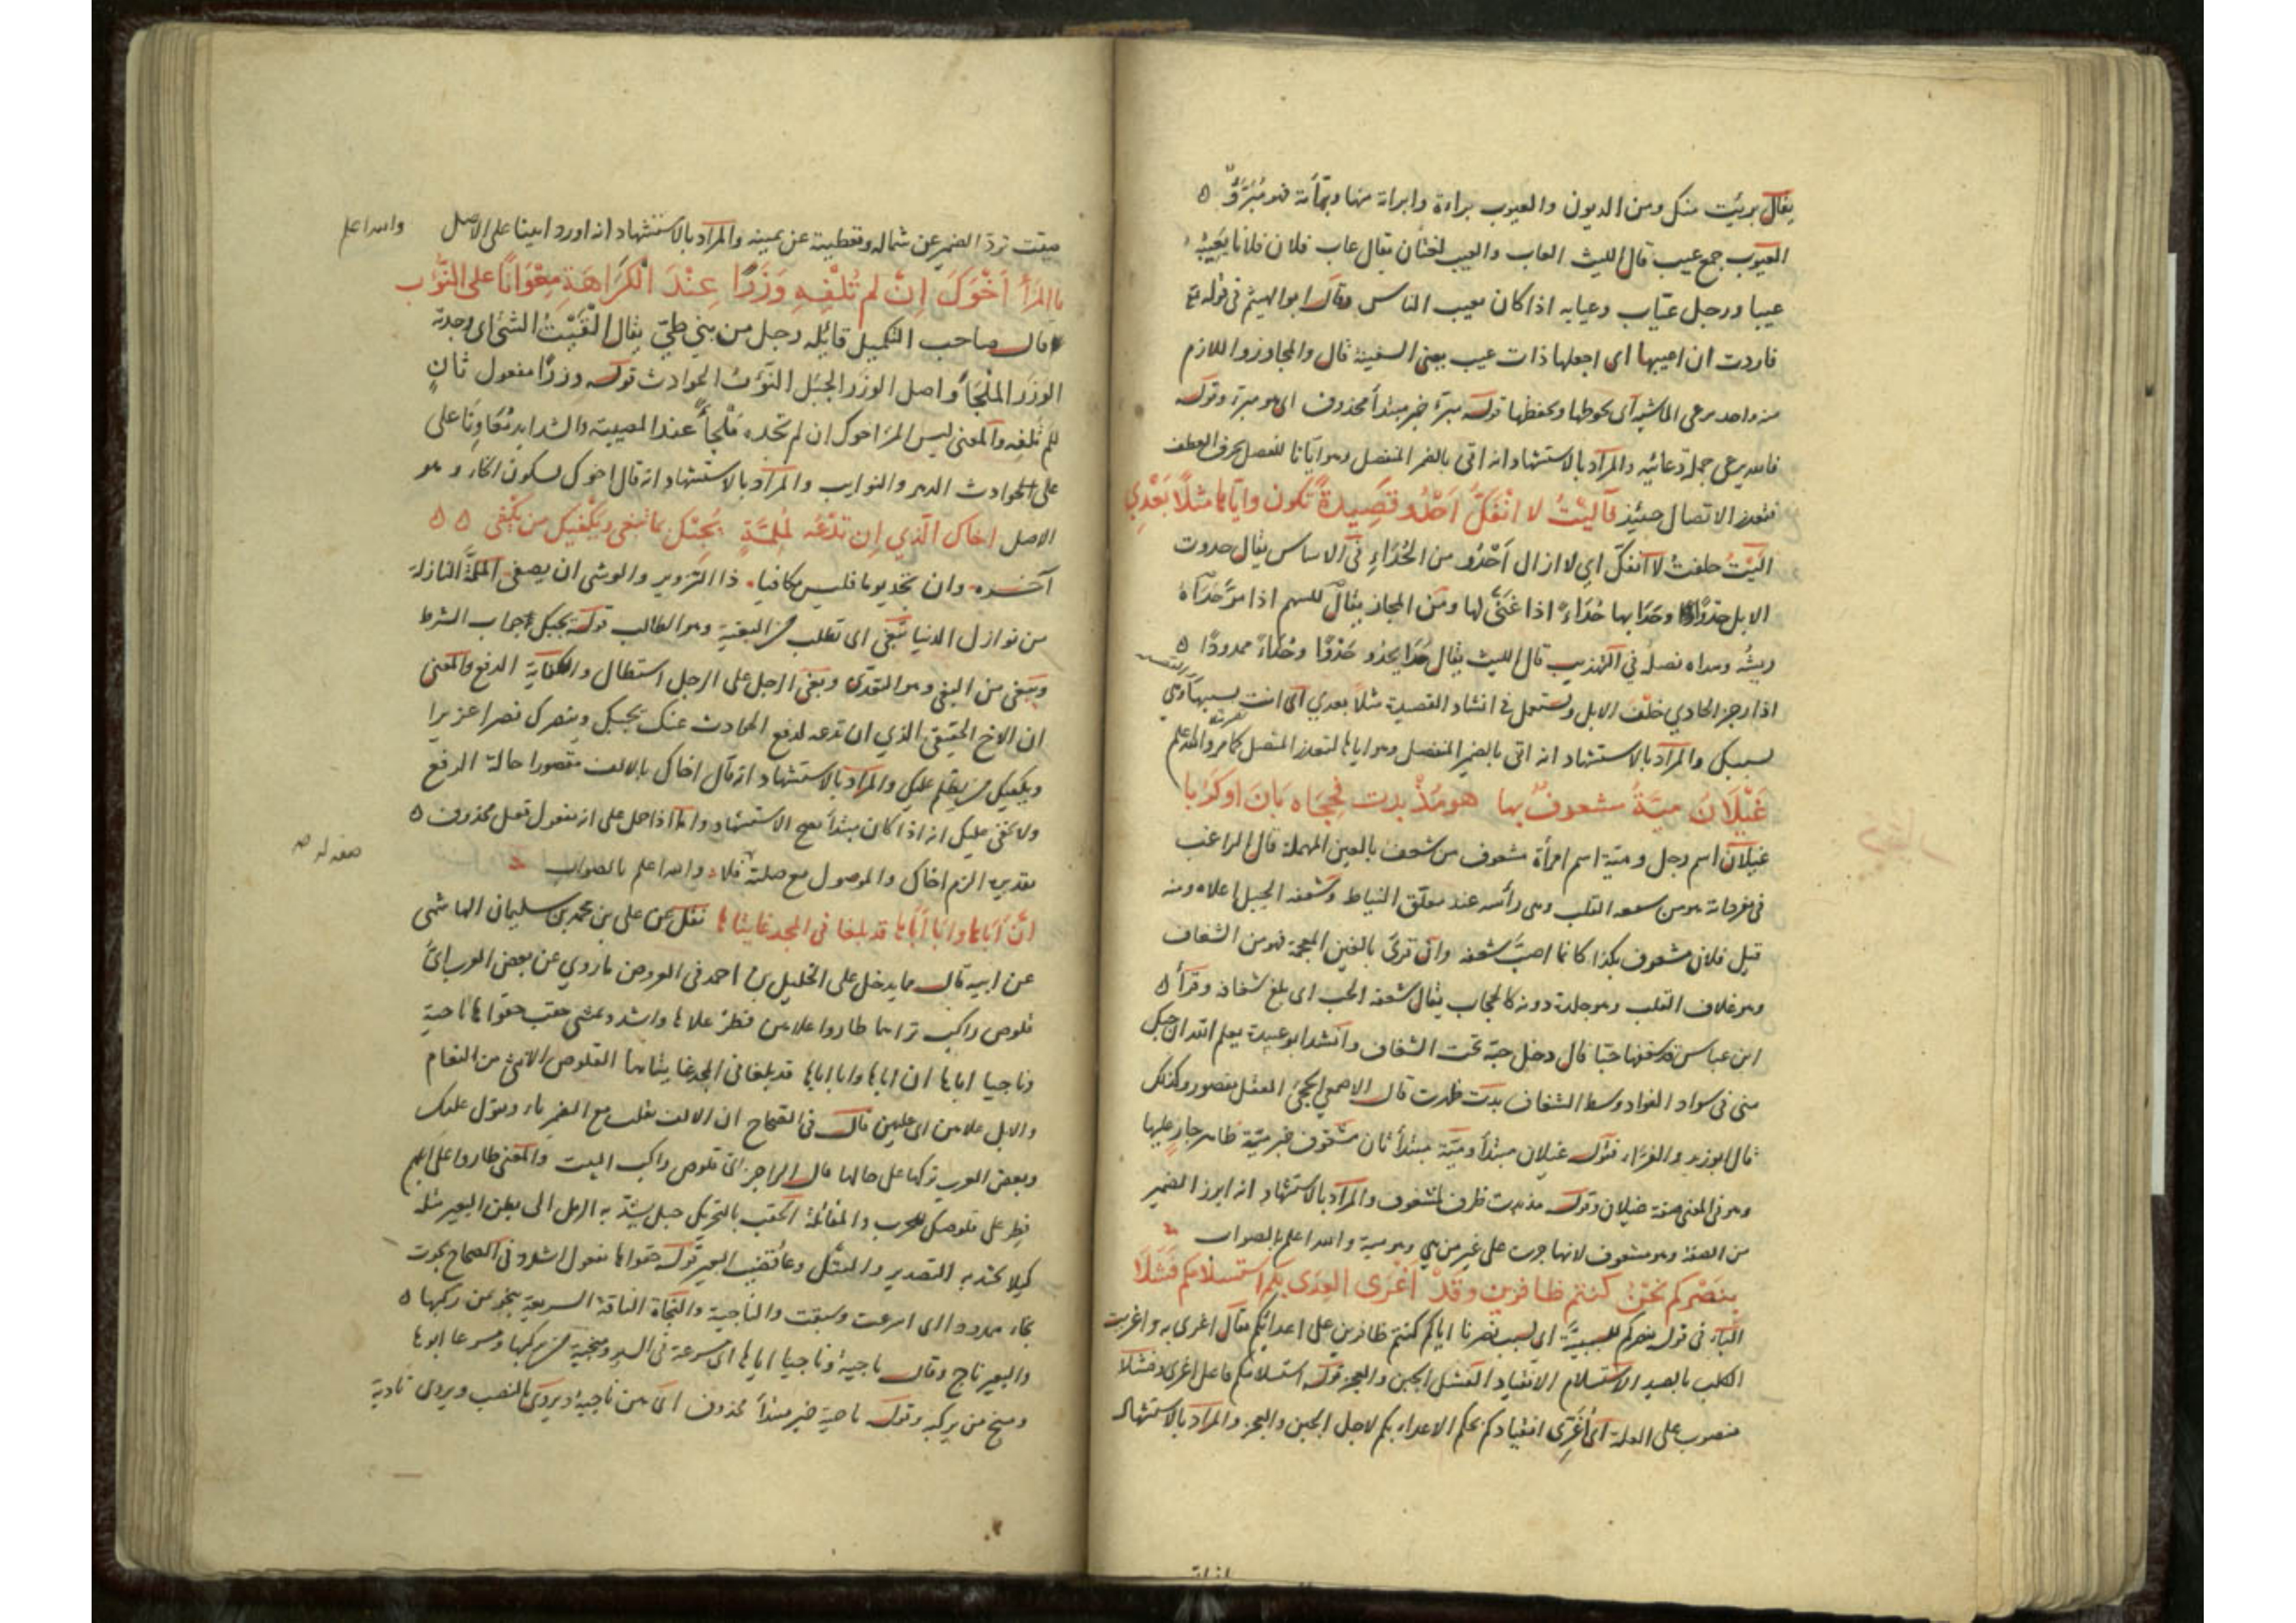 يقال بريت منك ومن الديون والعيوب براءة وابراته منها وبرأته فهو مُبَرَّؤٌ
العيوب جمع عيب قال الليث العاب والعيب لغتان يقال عاب فلان فلانا يعيبه
عيبا ورجل عيّاب وعيابه اذا كان يعيب الناس وقال ابو الهيثم فى قوله تع
فاردت ان اعيبها اى اجعلها ذات عيب يعنى السفينة قال والمجاوز واللازم
منه واحد يرعى الماشية اى يحوطها ويحفظها قوله مبرّة خبر مبتدأ محذوف اى هو مبرة وقوله
فالله يرعى جملة دعائيه والمراد بالاستشهاد انه اتى بالضمير المنفصل وهو ايانا للفصل بحرف العطف
فتعذر الاتصال حينئذ فآليتُ لا انفكّ اَحْدُو قصيدةً تكون واياها مثلًا بَعْدِي
آليتُ حلفت لا انفكّ اى لا ازال اَحْدُو من الحُدَاءِ فى الاساس يقال حدوت
الابل حدوًا وحَدَا بها حُدَاءً اذا غَنّى لها ومن المجاز يقال للسهم اذا مرّ حَدَاه
ريشُه وهداه نصلُه فى التهذيب قال الليث يقال حَدَا يحدُو حَدْوًا وحُدَاءً ممدودًا
اذا رجز الحادي خلف الابل ويستعمل فى انشاد القصيدة مثلًا بعدي اى انت
لسببك والمراد بالاستشهاد انه اتى بالضمير المنفصل وهو اياها لتعذر المتصل كما مر والله اعلم
غَيْلَانُ ميّةُ مشعوفٌ بها هو مُذْ بدت له فحِجَاه بَانَ اوكَرَبا
غيلان اسم رجل وميّة اسم امرأة مشعوف من شعف بالعين المهملة قال الراغب
فى مفرداته هو من شعفه القلب وهى رأسه عند معلّق النياط وشعفه الجبل اعلاه ومنه
قيل فلان مشعوف بكذا كانما اصيبَ شعفه وان قرئ بالغين المعجمة فهو من الشغاف
وهو غلاف القلب وهو جلدة دونه كالحجاب يقال شغفه الحب اى بلغ شغافه وقرأ
ابن عباس قد شغفها حبّا قال دخل حبّه تحت الشغاف وانشد ابو عبيدة يعلم الله ان حبك
منى فى سواد الفواد وسط الشغاف بدت ظهرت قال الاصمعى الحِجَى العقل مقصور وكذلك
قال ابو زيد والفرّاء فقوله غيلان مبتدأ وميّة مبتدأ ثان مشعوف خبر ميّة ظاهر جارٍ عليها
وهو فى المعنى صفة غيلان وقوله مذ بدت ظرف لمشعوف والمراد بالاستشهاد انه ابرز الضمير
من الصفة وهو مشعوف لانها جرت على غير من هى وهو مية والله اعلم بالصواب
بِنَصْرِكُم نَحْنُ كنتم ظافرين وقَدْ اَغْرَى العِدَى بكم استسلامكم فَشَلَا
الباء فى قوله بنصركم للسببيّة اى بسبب نصرنا اياكم كنتم ظافرين على اعدائكم يقال اغرى به واغريت
الكلب بالصيد الاستسلام الانقياد الفشل الجبن والعجز قوله استسلامكم فاعل اغرى وفشلا
منصوب على العلة اى اَغْرَى انقيادكم بحكم الاعداء بكم لاجل الجبن والعجز والمراد بالاستشهاد
صفت تردّ الضمير عن شماله وتعطيه عن يمينه والمراد بالاستشهاد انه اورد ابينا على الاصل والله اعلم
ما المرأُ اَخْوَكَ اِنْ لم تُلْفِهِ وَزَرًا عِنْدَ الْكَرَاهَةِ مِعْوَانًا على النُّوَب
قال صاحب التكميل قائله رجل من بنى طىّ يقال الفَيْتُ الشئ اى وجدته
الوزَر المَلْجَأُ واصل الوزَر الجبَل النُّوَبُ الحوادث قوله وزرًا مفعول ثانٍ
لم تُلفِه والمعنى ليس المرأ اخوك ان لم تجده مَلْجأً عند المصيبة والشدايد مُعَاوِنًا على
على الحوادث الدهر والنوايب والمراد بالاستشهاد انه قال اخوك بسكون الخاء وهو
الاصل اخاك الّذي اِن تدْعُه لمُلِمَّةٍ يُجِبْك بما تبغى ويَكْفِيك من يَبْغى
آخره وان تجد يوما فليس مكافيا ذا التزوير والوشى ان يصغى الملمّة النازلة
من نوازل الدنيا تبغى اى تطلب من البغية وهو الطالب قوله يجبك جواب الشرط
ويبغى من البغى وهو التعدى وبغى الرجل على الرجل استطال والكفاية الدفع والمعنى
ان الاخ الحقيقى الذي ان تدعه لدفع الحوادث عنك يجبك وينصرك نصرا عزيزا
ويكفيك من يظلم عليك والمراد بالاستشهاد انه قال اخاك بالالف مقصورا حالة الرفع
ولا يخفى عليك انه اذا كان مبتدأ يصح الاستشهاد واما اذا حمل على انه مفعول لفعل محذوف
تقديره الزم اخاك والموصول مع صلته صفة له فلا والله اعلم بالصواب
انّ اَبَاها وابَا اَبَاها قد بلغا فى المجد غايتاها نقل عن على بن محمد بن سليمان الهاشمى
عن ابيه قال مما يدخل على الخليل بن احمد فى العروض ما روي عن بعض العرب اىّ
قلوص راكب تراها طاروا علاهن فطر علاها واشدد بمثنى حقب حقواها ناجية
وناجيا اباها ان اباها وابا اباها قد بلغا فى المجد غايتاها القلوص الانثى من النعام
والابل علاهن اى عليهن قال فى الصحاح ان الالف تقلب مع الضمير ياء وتقول عليك
وبعض العرب يتركها على حالها قال الراجز اىّ قلوص راكب البيت والمعنى طاروا على ابلهم
فطر على قلوصك للحرب والمقاتلة الحقب بالتحريك حبل يشدّ به الرحل الى بطن البعير مثله
كيلا يجتذبه التصدير قوله حقواها مفعول اشدد فى الصحاح نجوت
نجاء ممدودا اى اسرعت وسبقت والناجية والنجاة الناقة السريعة ينجو من ركبها
والبعير ناج وقال ناجية وناجيا اباها اى مسرعة فى السير ومنجية من ركبها ومسرعا ابوها
ومنج من يركبه وقوله ناجية خبر مبتدأ محذوف اى هن ناجية ويروى بالنصب ويروى نادية